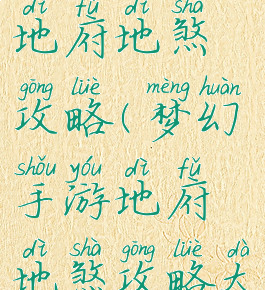 dì fǔ dì shà
地府地煞
gōng lüè mèng huàn
攻略(梦幻
shǒu yóu dì fǔ
手游地府
dì shà gōng lüè dà
地煞攻略大